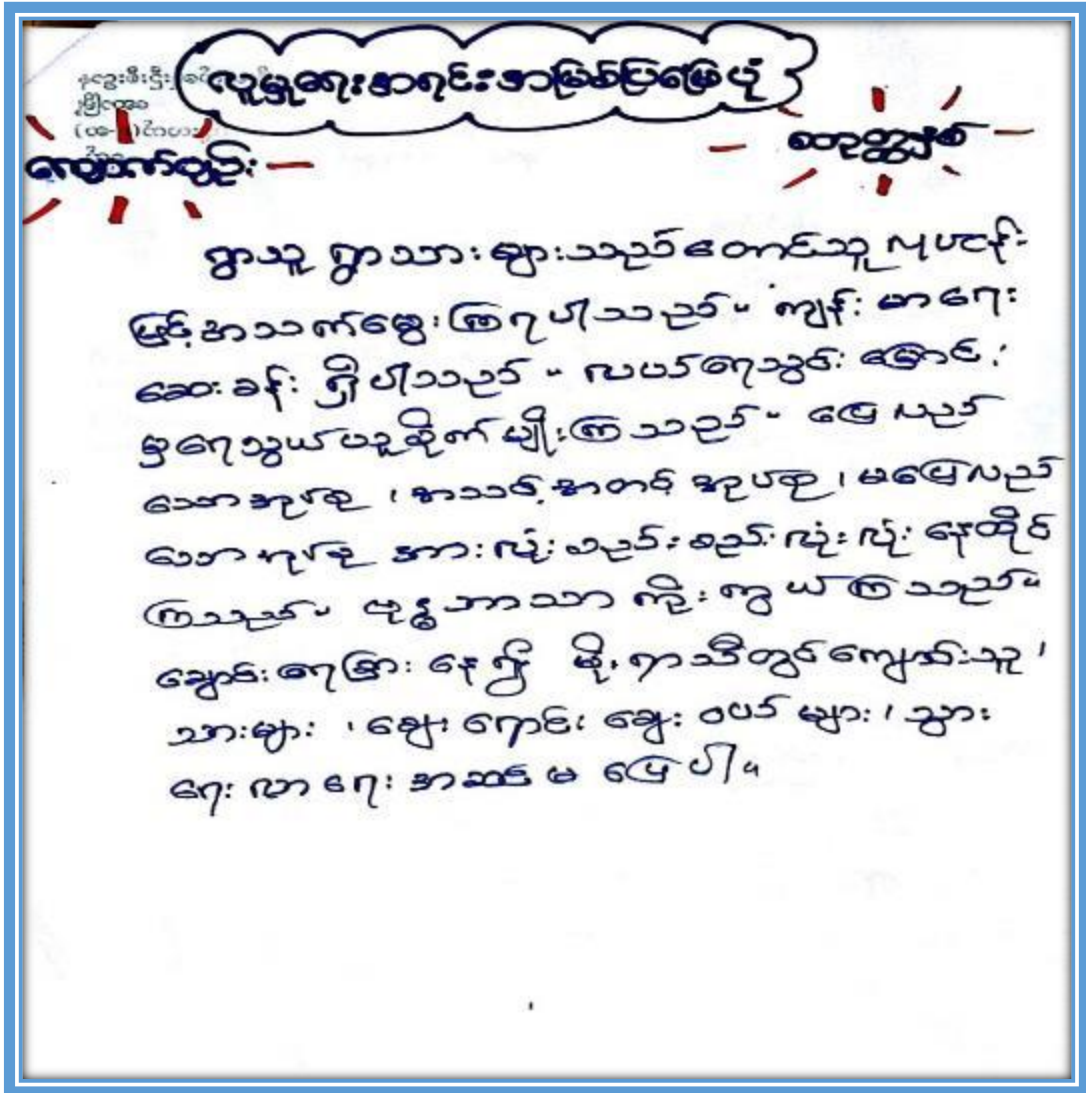 လူမှုရေးအရင်းအမြစ်ပြမြေပုံ
ကျောက်တွင်း
စတုတ္ထနှစ်
ရွာသူ ရွာသားများသည် တောင်သူ လုပငန်း
ဖြင့် အသက်မွေး ကြရပါသည်။ ကျန်းမာရေး
ဆေးခန်း ရှိပါသည်။ လယ်ရေသွင်း မြောင်း
မှ ရေသွယ်ယူစိုက်မျိုးကြသည်။ ပြေလည်
သောအုပ်စု ၊ အသင့်အတင့် အုပ်စု ၊ မပြေလည်
သောအုပ်စု အားလုံး စည်းစည်းလုံးလုံး နေထိုင်
ကြသည်။ ဗုဒ္ဓဘာသာ ကိုးကွယ်ကြသည်။
ချောင်းရေခြားနေ၍ မိုးရာသီတွင် ကျောင်းသူ ၊
သားများ ၊ ဈေးရောင်း ဈေးဝယ် များ ၊ သွား
ရေး လာရေး အဆင် မ ပြေပါ။